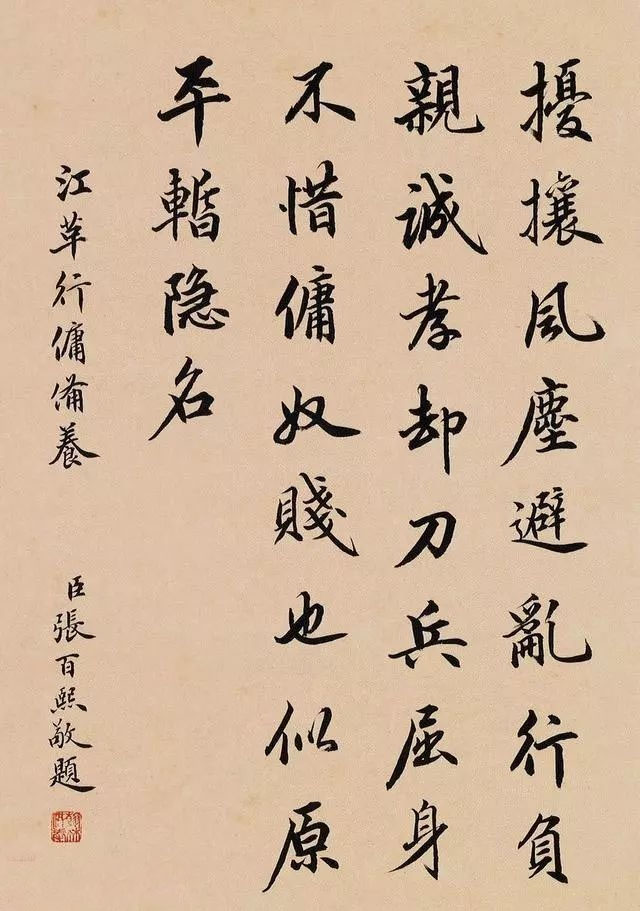 擾攘風塵避亂行負
親誠孝却刀兵屈身
不惜傭奴賤也似原
平暫隐名
江革行傭備養
臣張百熙敬題